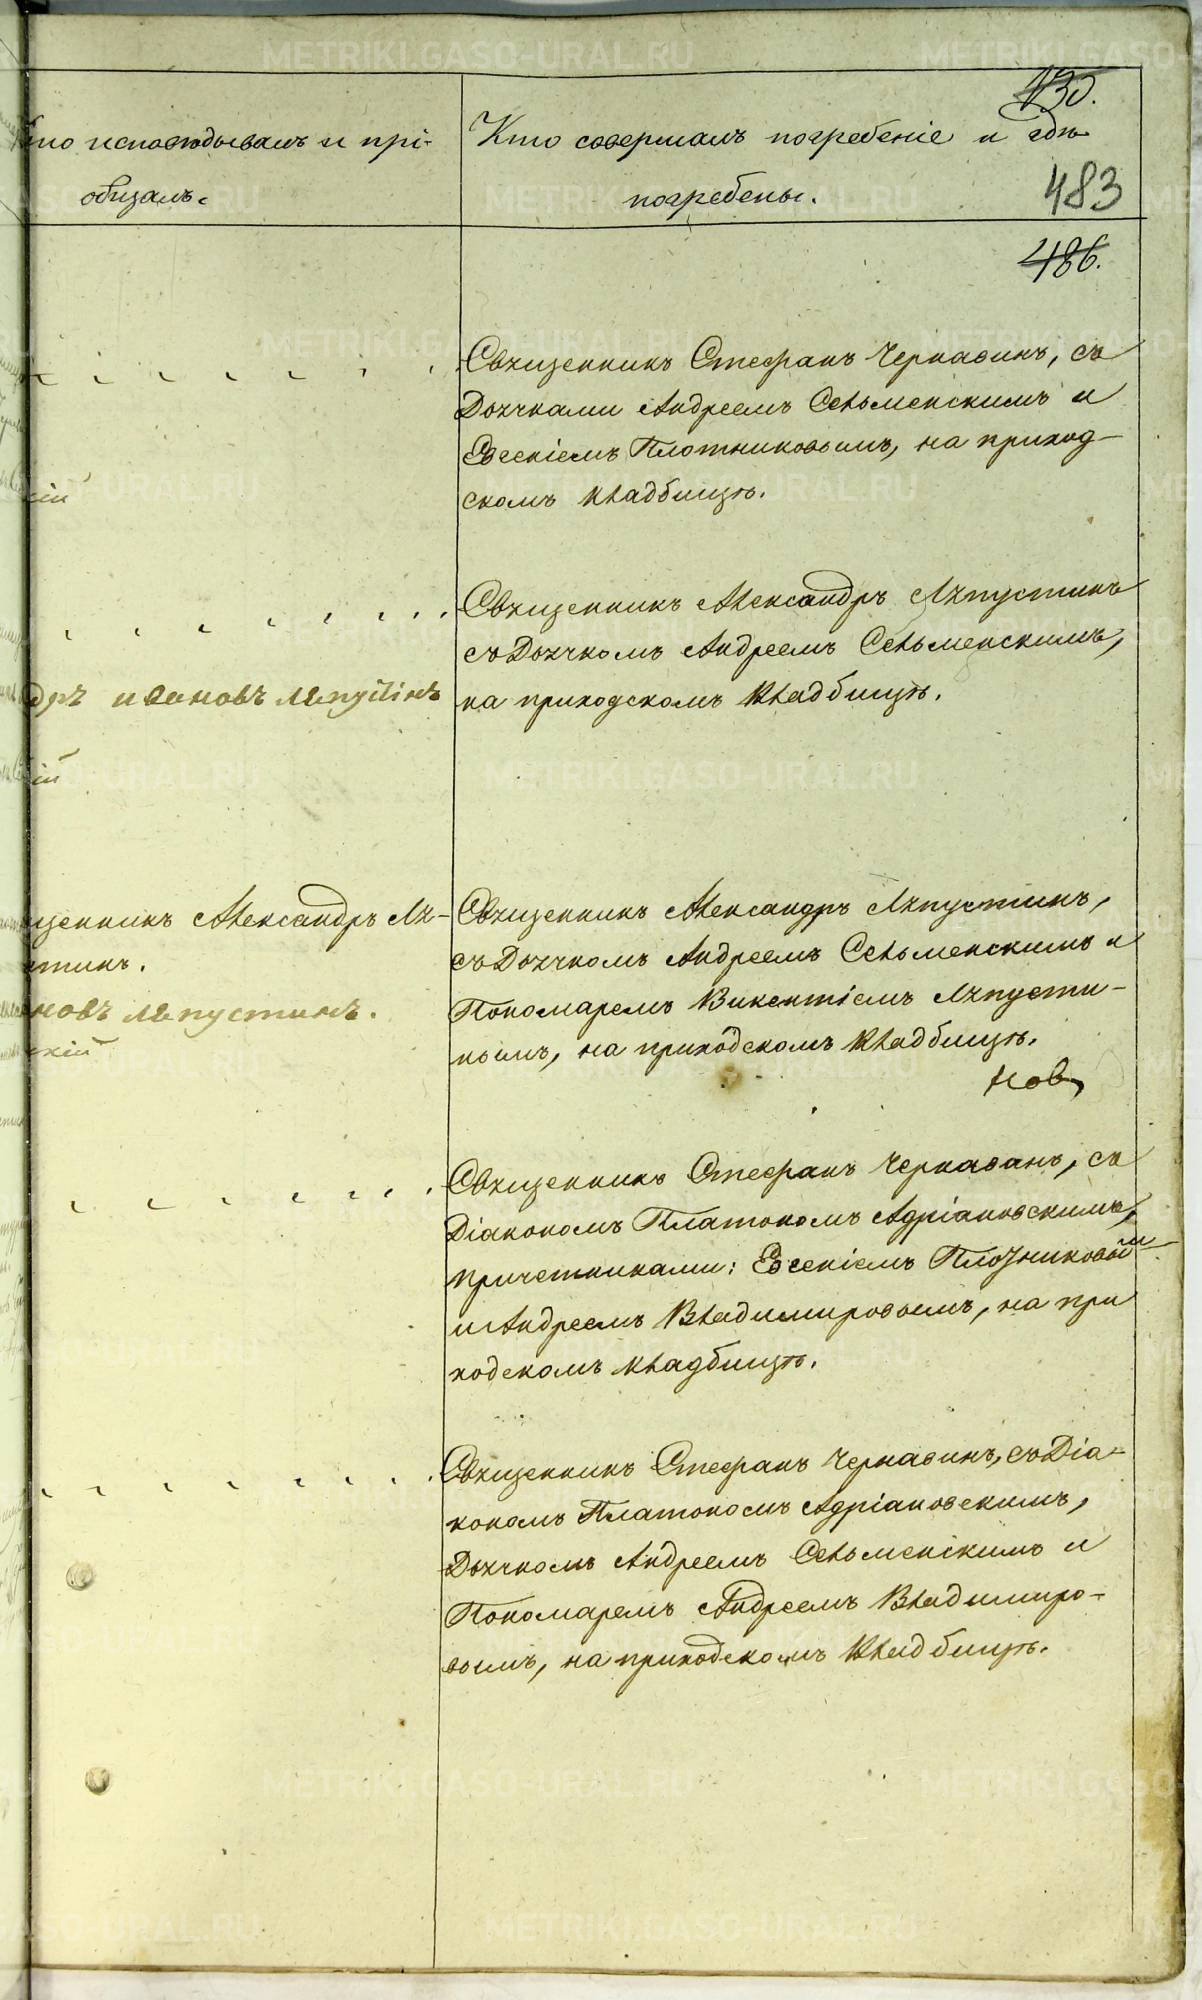 130.
Кто исповѣдывалъ и прі-
общалъ.
Кто совершалъ погребеніе и гдѣ
погребены.
483
486.
Священникъ Стефанъ Чернавинъ, съ
Дьячками Андреемъ Сельменскимъ и
Евсеніемъ Плотниковымъ, на приход-
скомъ кладбищѣ.
скій
Священникъ Александръ Ляпустинъ
съ Дьячкомъ Андреемъ Сельменскимъ,
на приходскомъ кладбищѣ.
дръ ивановъ ляпустинъ
скій
щенникъ Александръ Ля-
стинъ.
новъ ляпустинъ.
скій
Священникъ Александръ Ляпустинъ,
съ Дьячкомъ Андреемъ Сельменскимъ и
Пономаремъ Викентіемъ Ляпусти-
нымъ, на приходскомъ кладбищѣ.
Священникъ Стефанъ Чернавинъ, съ
Діакономъ Платономъ Адріановскимъ,
причетниками: Евсеніемъ Плотниковым
и Андреемъ Владимировымъ, на при
ходскомъ кладбищѣ.
Священникъ Стефанъ Чернавинъ, съ Діа-
кономъ Платономъ Адріановскимъ,
Дьячкомъ Андреемъ Сельменскимъ и
Пономаремъ Андреемъ Владимиро-
вымъ, на приходскомъ кладбищѣ.
METRIKI.GASO-URAL.RU